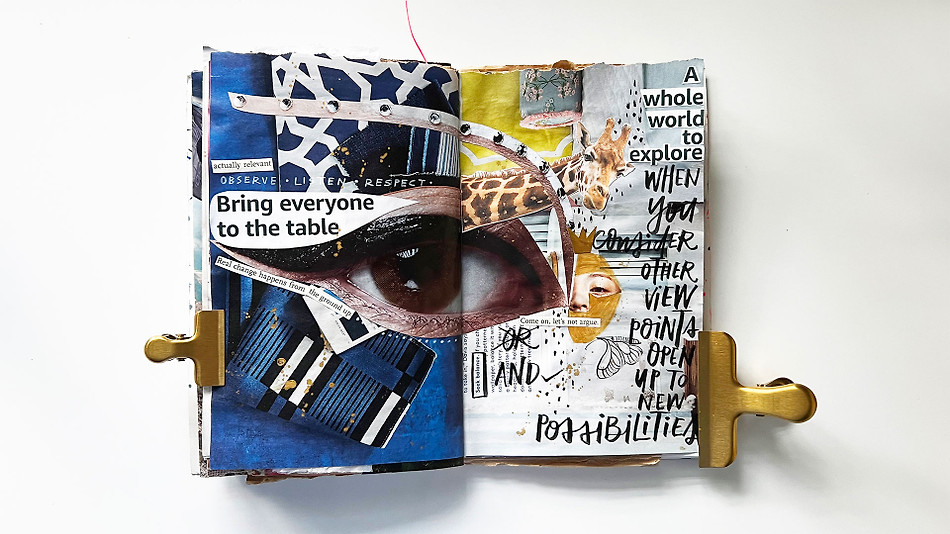 actually relevant
OBSERVE • LISTEN • RESPECT •
Bring everyone
to the table
Real change happens from the ground up
A
whole
world
to
explore
WHEN
YOU
CONSIDER
OTHER
VIEW
POINTS
OPEN
UP TO
NEW
POSSIBILITIES
Come on, let's not argue.
OR
AND
Seek balance.